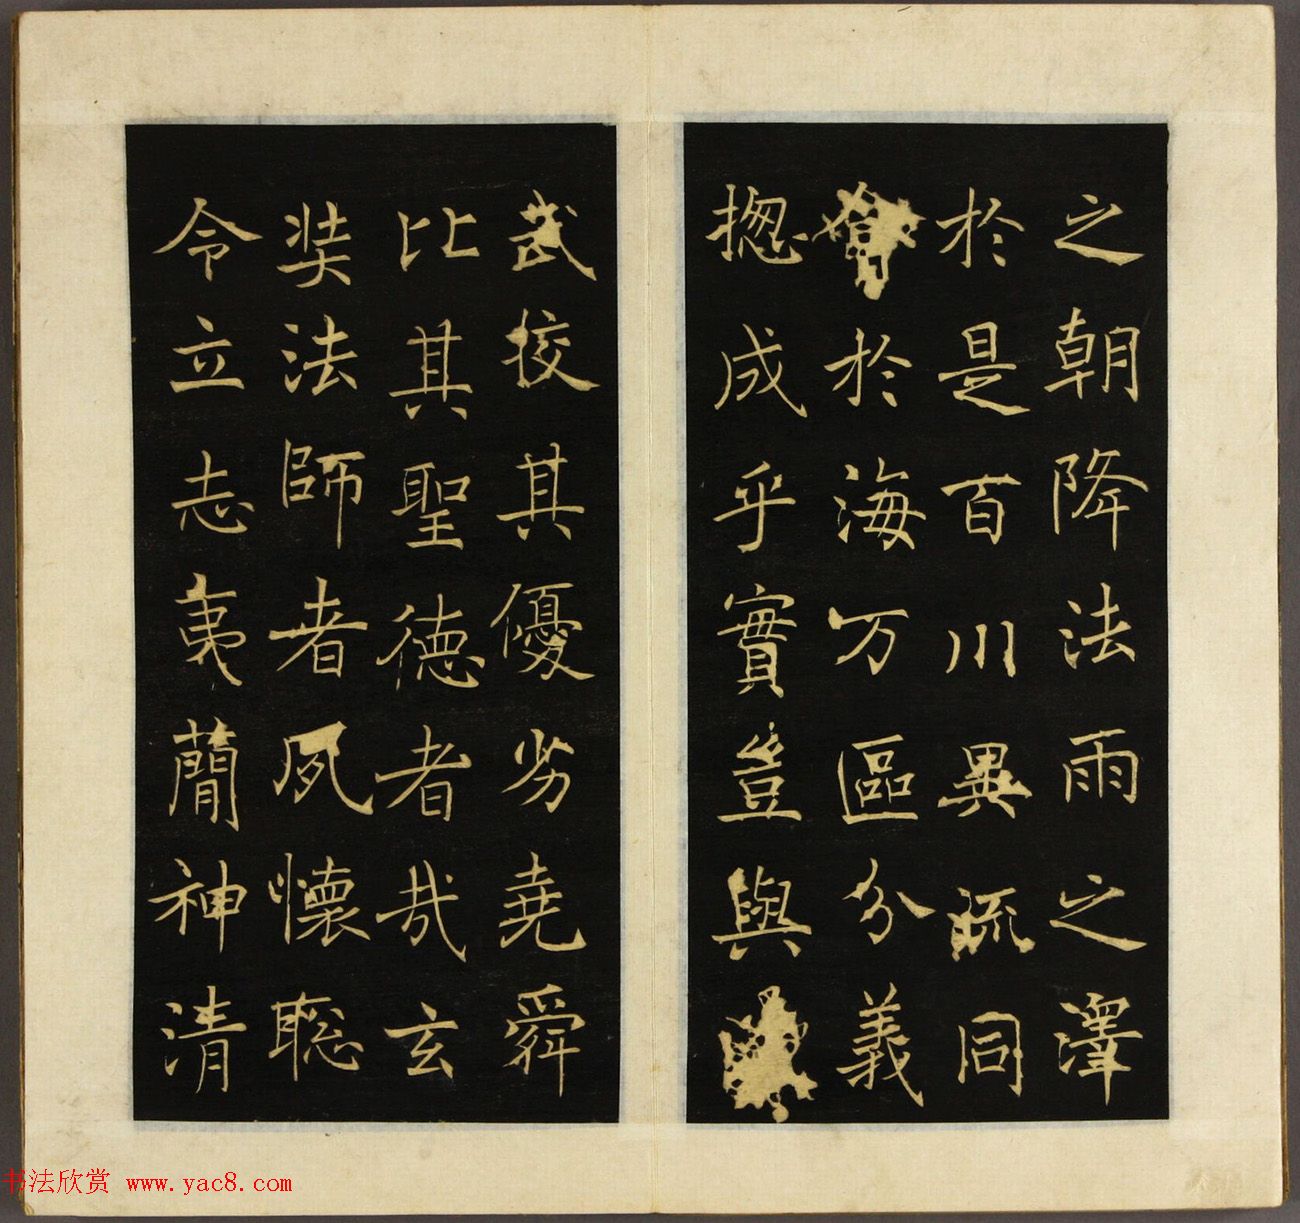 之朝降法雨之澤
於是百川異流同
會於海万區分義
揔成乎實豈與
武挍其優劣堯舜
比其聖德者哉玄
奘法師者夙懷聡
令立志夷蕳神清
书法欣赏 www.yac8.com